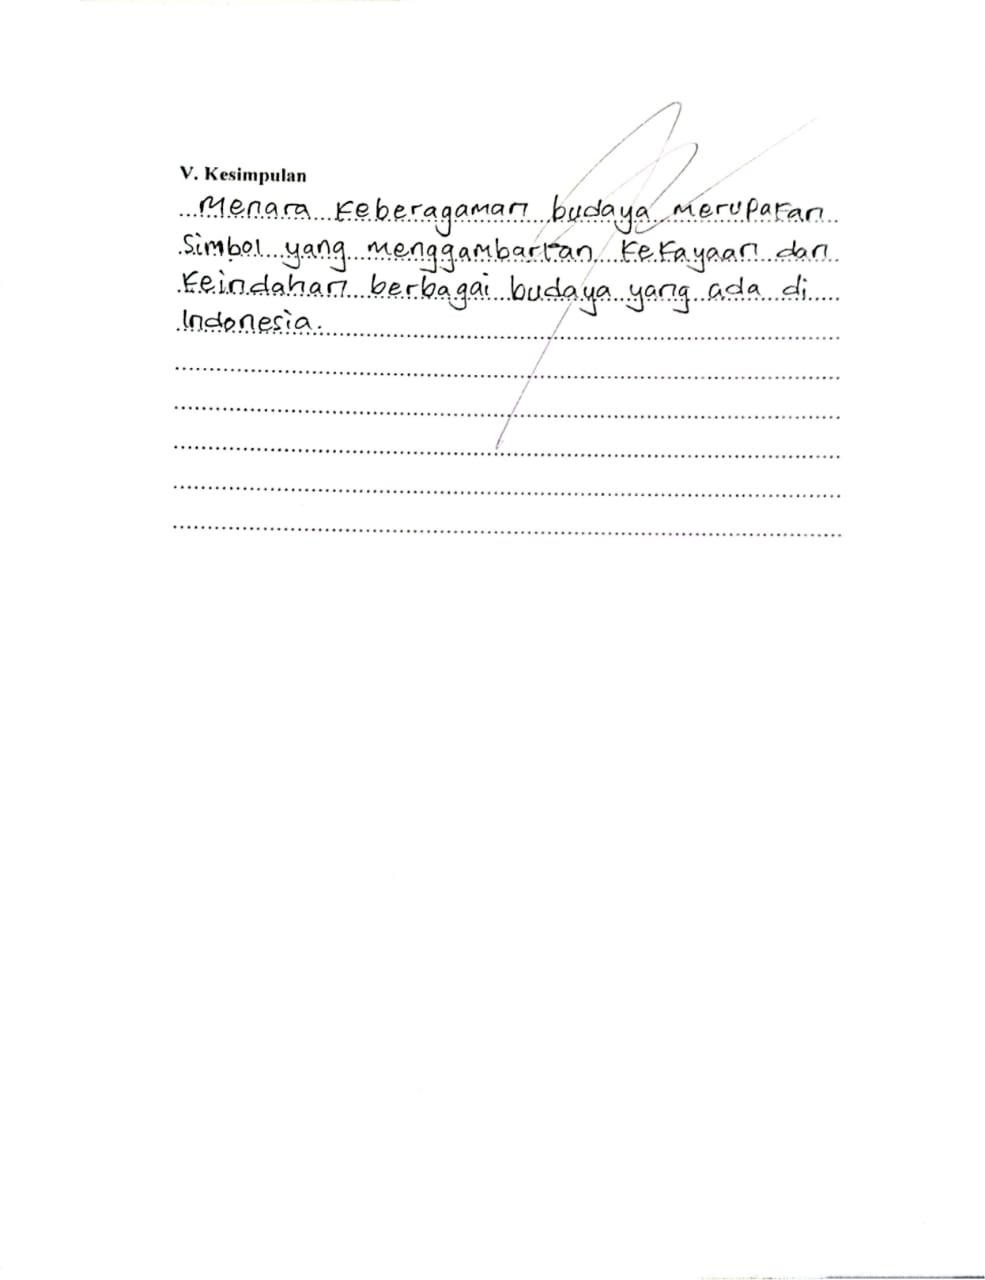 V. Kesimpulan
Menara keberagaman budaya merupakan
Simbol yang menggambarkan kekayaan dan
keindahan berbagai budaya yang ada di
Indonesia.